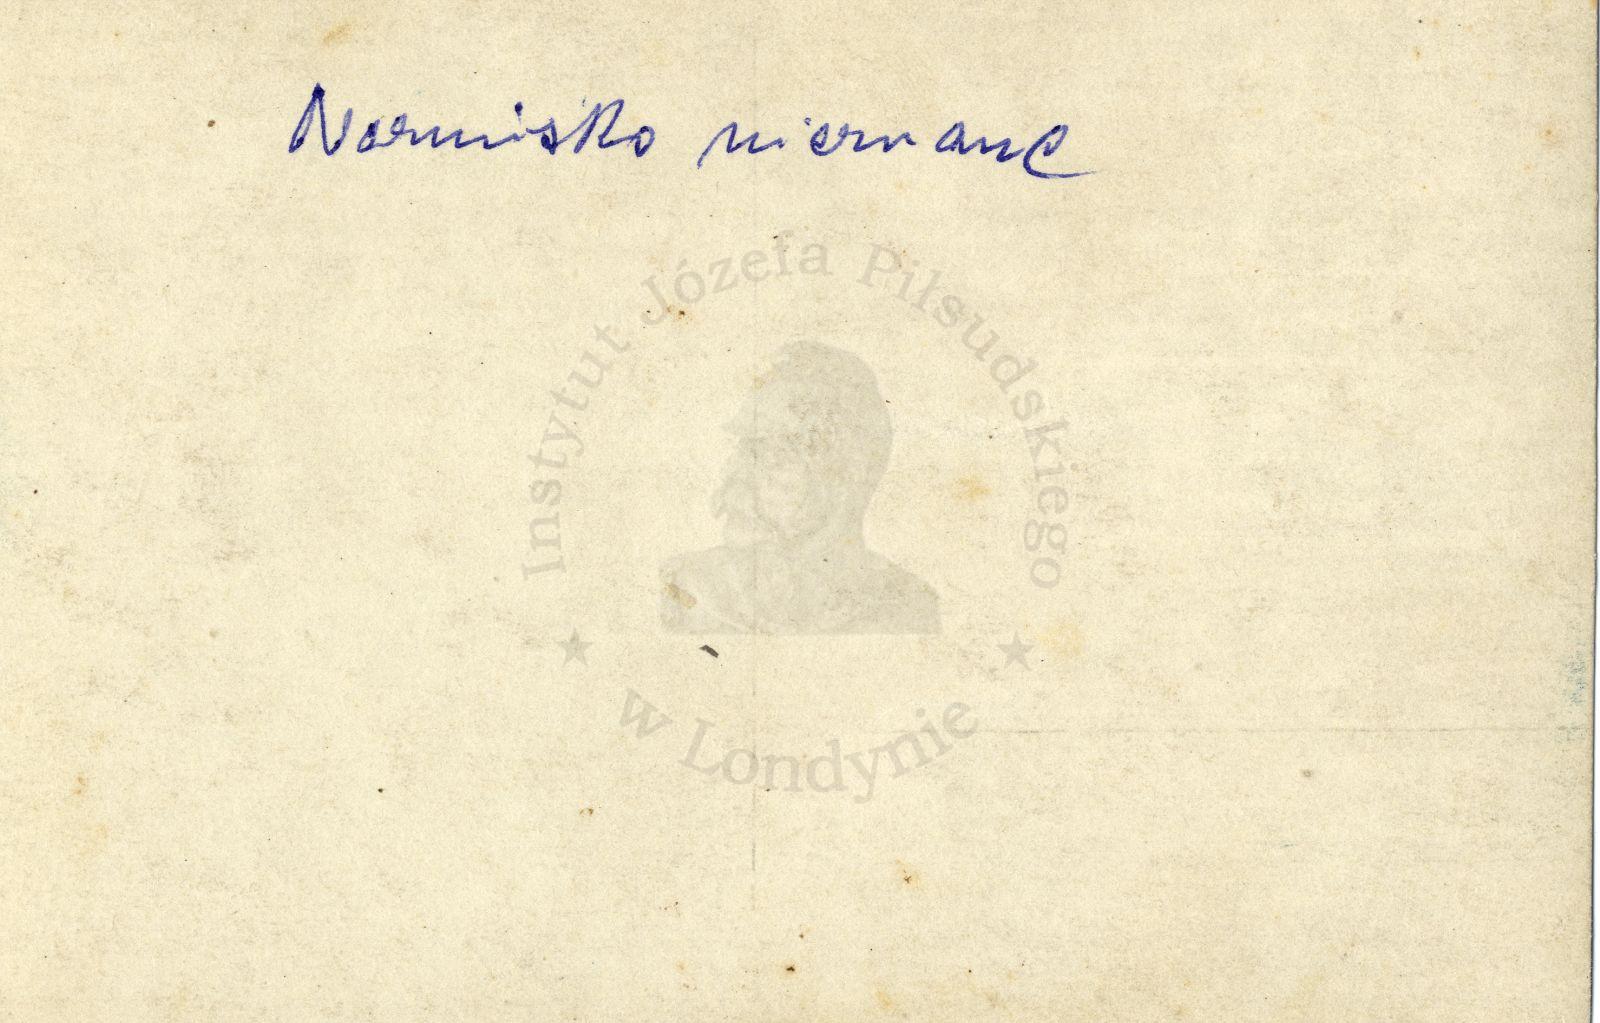 Nazwisko nieznane
Instytut Józefa Piłsudskiego
w Londynie